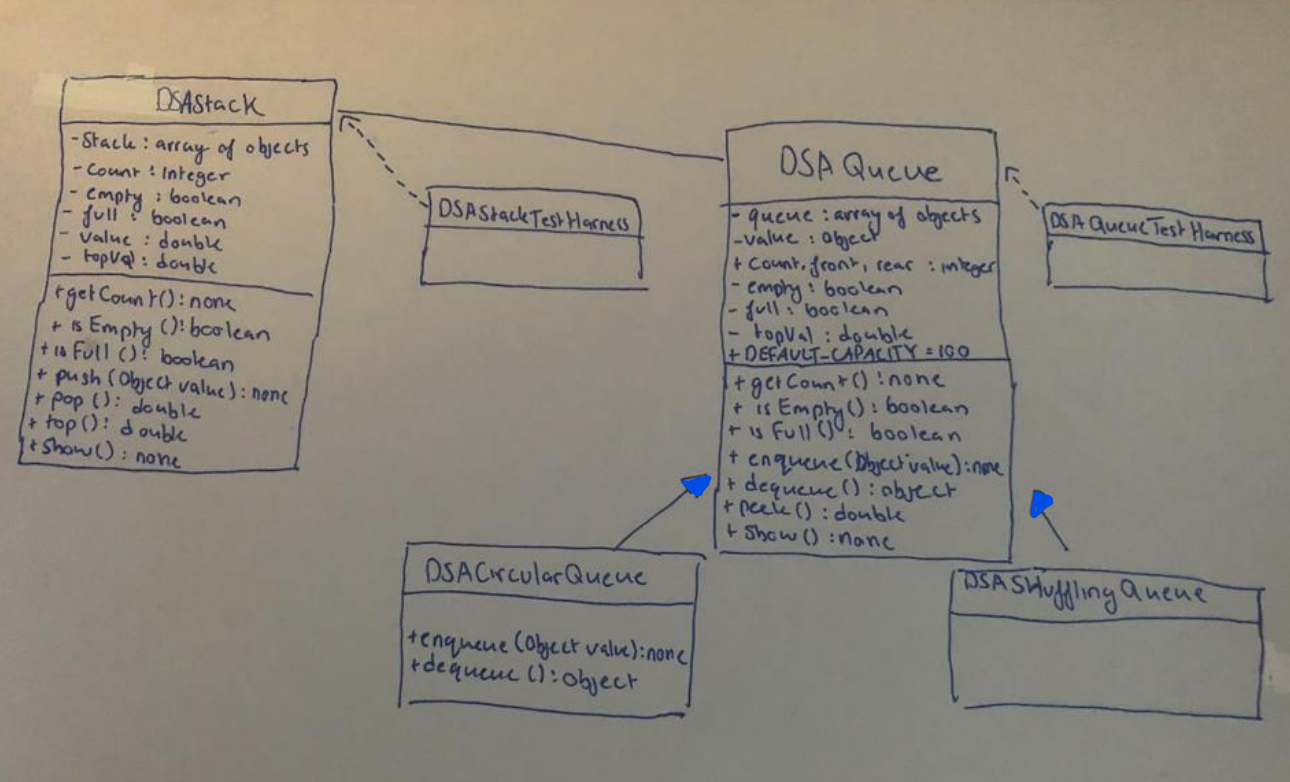 DSAStack
- Stack : array of objects
- Count : Integer
- empty : boolean
- full : boolean
- value : double
- topVal : double
+ getCount() : none
+ isEmpty () : boolean
+ isFull () : boolean
+ push (Object value) : none
+ pop () : double
+ top() : double
+ Show() : none
DSAStackTestHarness
DSA Queue
- queue : array of objects
- value : object
+ Count, front, rear : integer
- empty : boolean
- full : boolean
- topVal : double
+ DEFAULT-CAPACITY = 100
+ getCount() : none
+ isEmpty() : boolean
+ isFull() : boolean
+ enqueue (Object value) : none
+ dequeue () : object
+ peek() : double
+ Show() : none
DSA Queue Test Harness
DSACircularQueue
+ enqueue (Object value) : none
+ dequeue () : object
DSAShufflingQueue